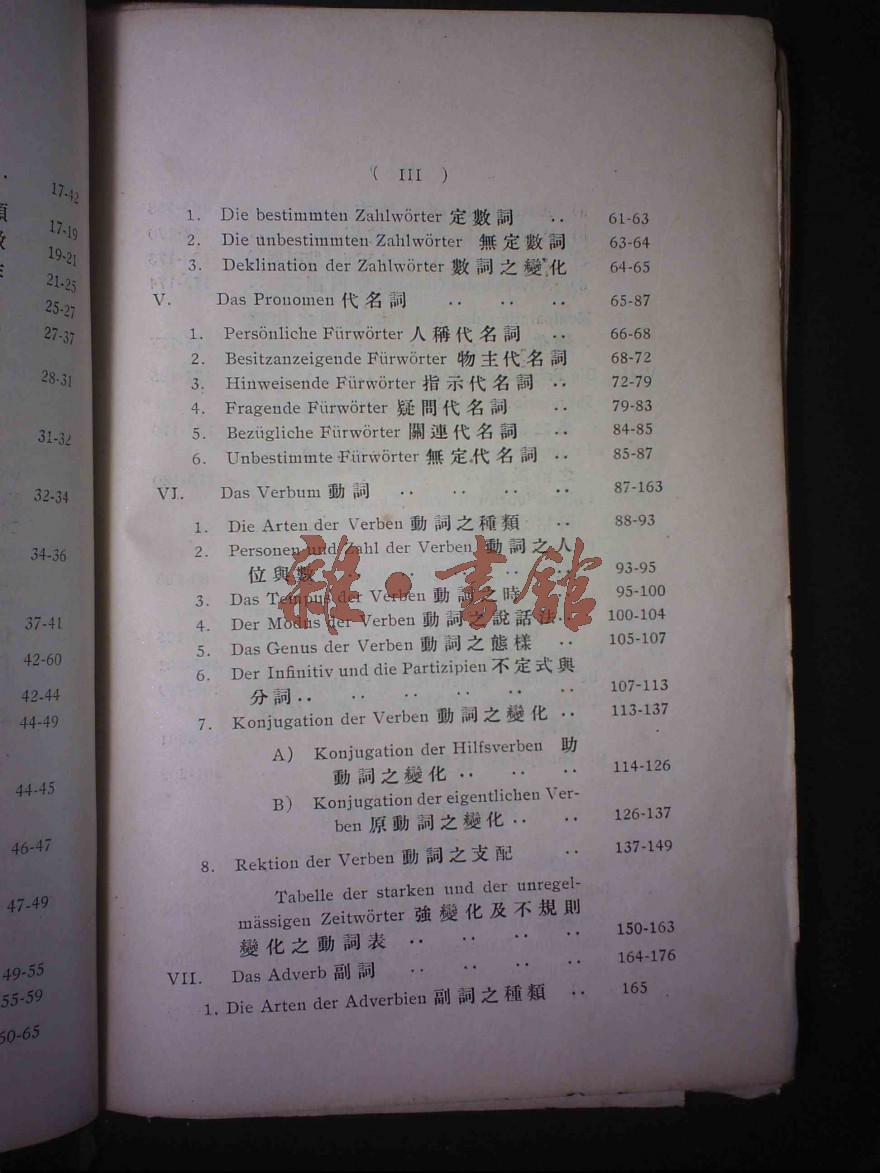 17-42
17-19
19-21
21-25
25-27
27-37
28-31
31-32
32-34
34-36
37-41
42-60
42-44
44-49
44-45
46-47
47-49
49-55
55-59
60-65
( III )
1. Die bestimmten Zahlwörter 定數詞 .. 61-63
2. Die unbestimmten Zahlwörter 無定數詞 63-64
3. Deklination der Zahlwörter 數詞之變化 64-65
V. Das Pronomen 代名詞 .. .. .. 65-87
1. Persönliche Fürwörter 人稱代名詞 .. 66-68
2. Besitzanzeigende Fürwörter 物主代名詞 68-72
3. Hinweisende Fürwörter 指示代名詞 .. 72-79
4. Fragende Fürwörter 疑問代名詞 .. 79-83
5. Bezügliche Fürwörter 關連代名詞 .. 84-85
6. Unbestimmte Fürwörter 無定代名詞 .. 85-87
VI. Das Verbum 動詞 .. .. .. .. 87-163
1. Die Arten der Verben 動詞之種類 .. 88-93
2. Personen und Zahl der Verben 動詞之人
位與數 .. .. .. .. .. 93-95
3. Das Tempus der Verben 動詞之時 95-100
4. Der Modus der Verben 動詞之說話法 .. 100-104
5. Das Genus der Verben 動詞之態樣 .. 105-107
6. Der Infinitiv und die Partizipien 不定式與
分詞 .. .. .. .. .. .. 107-113
7. Konjugation der Verben 動詞之變化 .. 113-137
A) Konjugation der Hilfsverben 助
動詞之變化 .. .. .. 114-126
B) Konjugation der eigentlichen Ver-
ben 原動詞之變化 .. .. 126-137
8. Rektion der Verben 動詞之支配 .. 137-149
Tabelle der starken und der unregel-
mässigen Zeitwörter 強變化及不規則
變化之動詞表 .. .. .. .. 150-163
VII. Das Adverb 副詞 .. .. .. .. 164-176
1. Die Arten der Adverbien 副詞之種類 .. 165
雜·書館